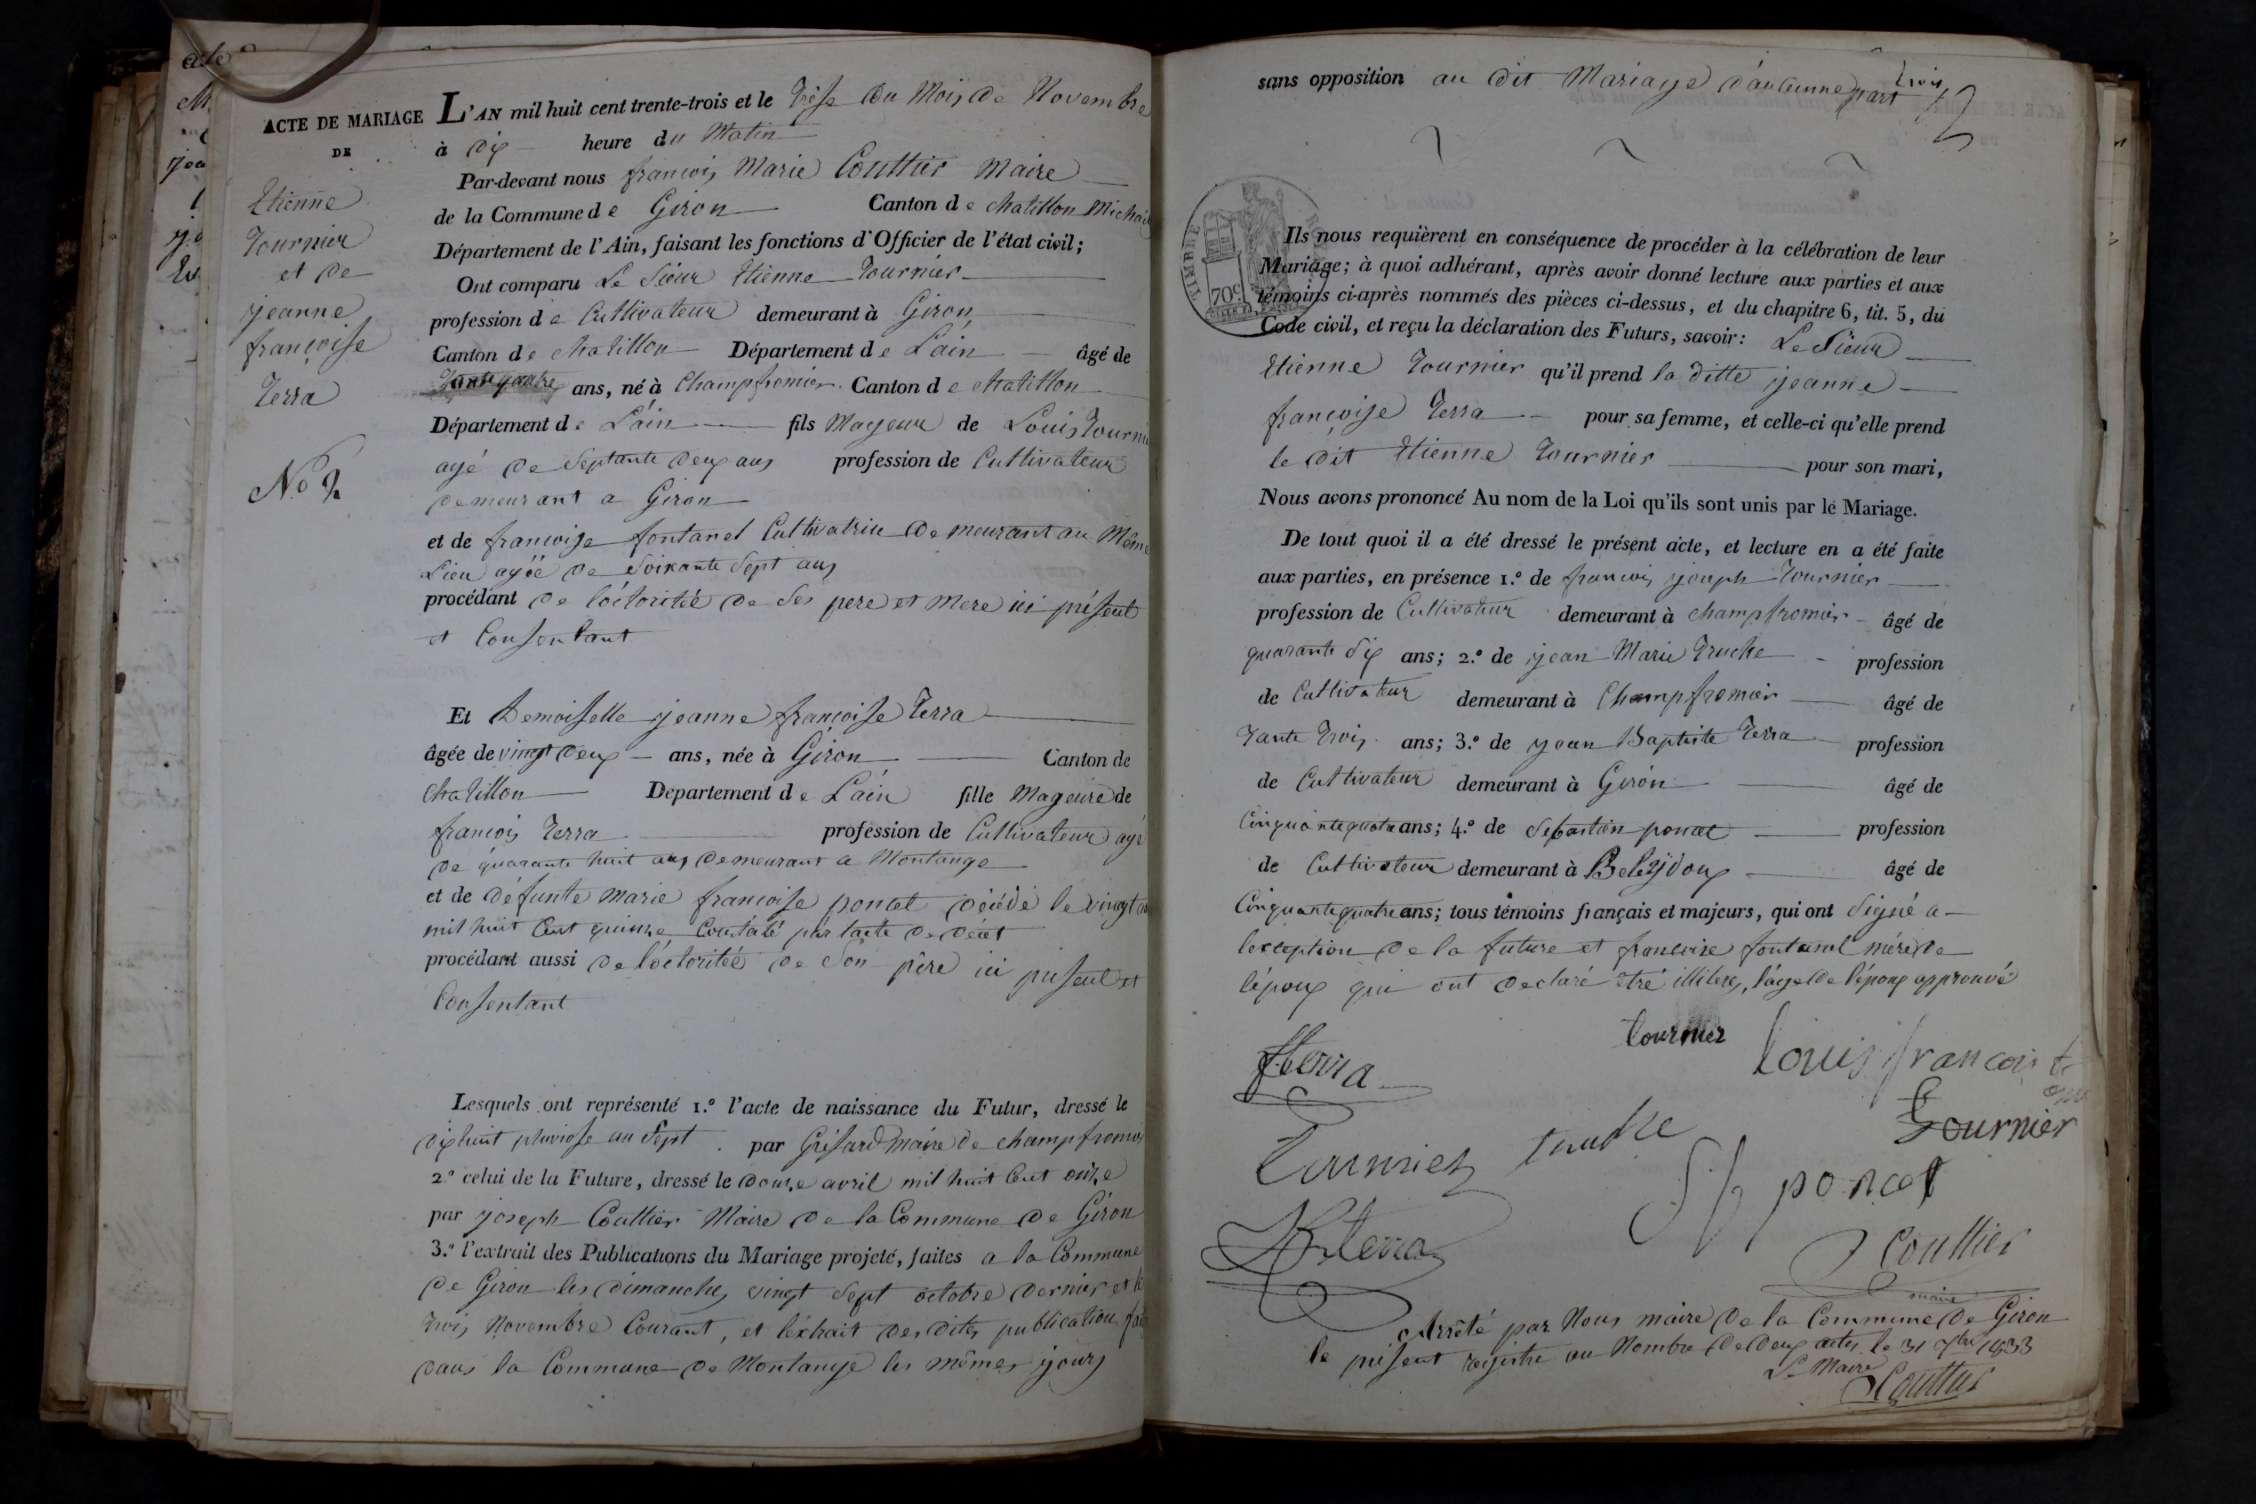 ACTE DE MARIAGE
DE
Etienne
Tournier
et de
jeanne
françoise
Terra
No 2
L'AN mil huit cent trente-trois et le Treise du Mois de Novembre
à dix heure du Matin
Par-devant nous françois Marie Couttier Maire
de la Commune de Giron Canton de chatillon Michaille
Département de l'Ain, faisant les fonctions d'Officier de l'état civil;
Ont comparu Le Sieur Etienne Tournier
profession de Cultivateur demeurant à Giron
Canton de chatillon Département de L'ain âgé de
ans, né à Champfromier Canton de chatillon
Département de L'ain fils Mageur de Louis Tournier
agé de Septante deux ans profession de Cultivateur
demeurant a Giron
et de francoise fontanel Cultivatrice demeurant au Même
Lieu agée de Soixante Sept ans
procédant de loctoritée de Ses pere et Mere ici présent
et Consentant
Et Demoiselle jeanne françoise Terra
âgée de vingt deux ans, née à Giron Canton de
chatillon Departement de L'ain fille Mageure de
francois Terra profession de Cultivateur agé
de quarante huit ans demeurant a Montange
et de défunte Marie francoise poncet décédé le vingt
mil huit Cent quinze Constaté par lacte de décet
procédant aussi de loctoritée de Son père ici présent et
Consentant
Lesquels ont représenté 1.º l'acte de naissance du Futur, dressé le
dixhuit pluviose an Sept par Grisard Maire de champfromier
2º celui de la Future, dressé le douze avril mil huit Cent onze
par joseph Couttier Maire de la Commune de Giron
3.º l'extrait des Publications du Mariage projeté, faites a la Commune
de Giron les dimanches vingt Sept octobre dernier et le
trois Novembre Courant, et lextrait desdites publication
dans la Commune de Montange les mêmes jours
sans opposition au dit Mariage d'aucunne part
TIMBRE
70c
Ils nous requièrent en conséquence de procéder à la célébration de leur
Mariage; à quoi adhérant, après avoir donné lecture aux parties et aux
témoins ci-après nommés des pièces ci-dessus, et du chapitre 6, tit. 5, du
Code civil, et reçu la déclaration des Futurs, savoir: Le Sieur
Etienne Tournier qu'il prend la ditte jeanne
françoise Terra pour sa femme, et celle-ci qu'elle prend
le dit Etienne Tournier pour son mari,
Nous avons prononcé Au nom de la Loi qu'ils sont unis par le Mariage.
De tout quoi il a été dressé le présent acte, et lecture en a été faite
aux parties, en présence 1.º de francois joseph Tournier
profession de Cultivateur demeurant à champfromier âgé de
quarante Six ans; 2.º de jean Marie Truche profession
de Cultivateur demeurant à Champfromier âgé de
Tante Trois ans; 3.º de jean Baptiste Terra profession
de Cultivateur demeurant à Giron âgé de
Cinquantequatre ans; 4.º de Sebastien poncet profession
de Cultivateur demeurant à Beleydoux âgé de
Cinquantequatre ans; tous témoins français et majeurs, qui ont Signé a
lexception de la future et francoise fontanel mère de
lépoux qui ont declaré etre illiteres, l'âge de l'époux approuvé
fterra
tournier
Louis francois
Tournier
Tournier
truche
Sb poncet
JBterra
Couttier
maire
Arrêté par Nous maire de la Commune de Giron
le présent registre au Nombre de deux actes le 31 Xbre 1833
Le Maire
Couttier